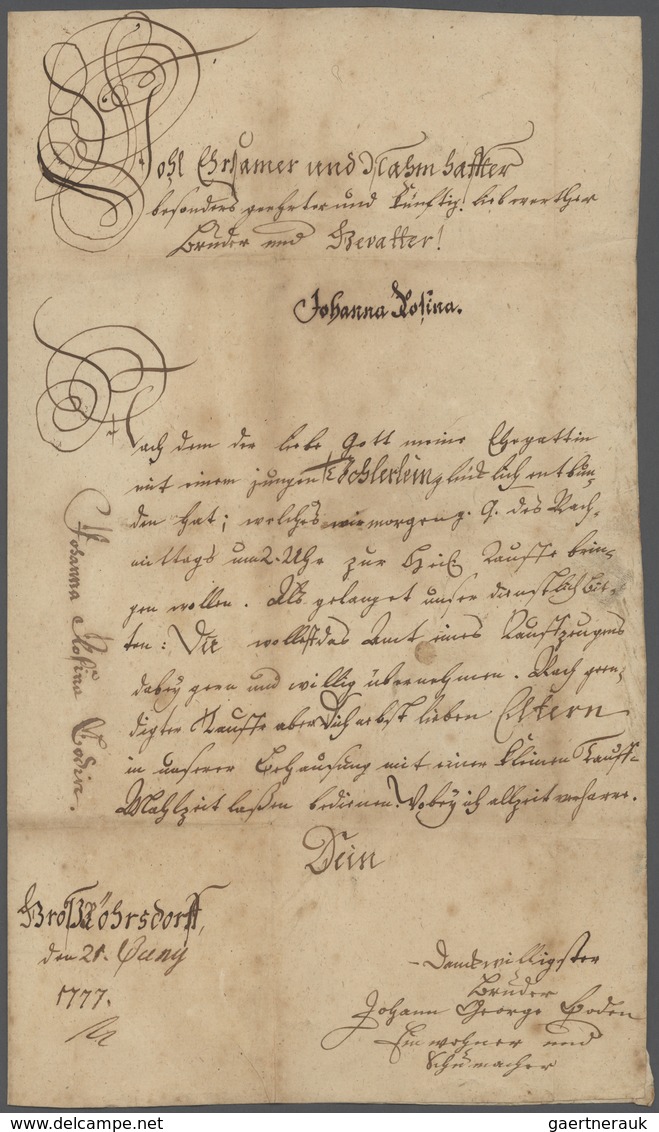 Wohl Ehrsamer und Nahmhaffter
besonders geehrter und künftig. liebwerther
Bruder und Gevatter!
Johanna Rosina.
Nach dem der liebe Gott meine Ehegattin
mit einem jungen Töchterlein glücklich entbun-
den hat; welches wir morgen g. G. des Nach-
mittags um 2. Uhr zur Heil. Tauffe brin-
gen wollen. Als gelanget unser dienstlich bit-
ten: Du wollest das Amt eines Tauffzeugens
dabey gern und willig übernehmen. Nach geen-
digter Tauffe aber Dich nebst lieben Eltern
in unserer Behausung mit einer kleinen Tauff-
Mahlzeit laßen bedienen. Wobey ich allzeit verharre.
Dein
Johanna Rosina Bodin.
Groß Röhrsdorff,
den 21. Juny
1777.
Dienstwilligster
Bruder
Johann George Boden
Einwohner und
Schumacher
CPM-UPD.COM
gaertnerauk